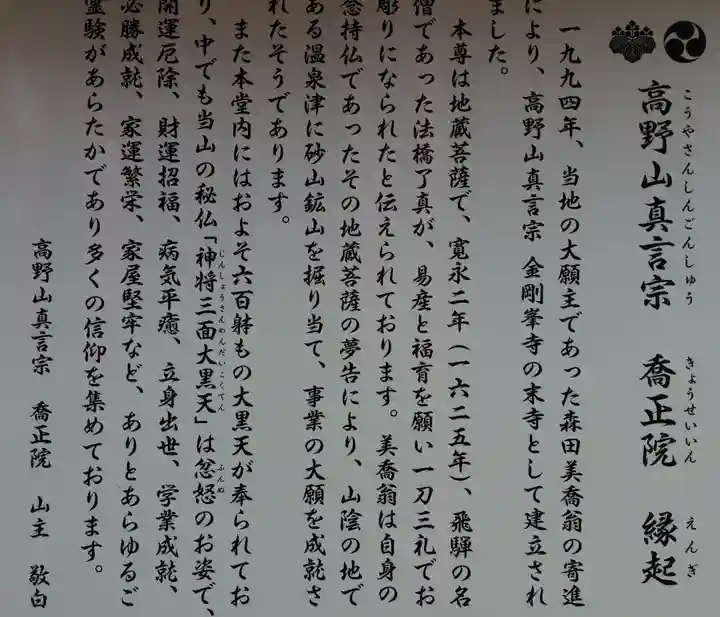 高野山真言宗 喬正院 縁起
こうやさんしんごんしゅう きょうせいいん えんぎ
一九九四年、当地の大願主であった森田美喬翁の寄進
により、高野山真言宗 金剛峯寺の末寺として建立され
ました。
本尊は地蔵菩薩で、寛永二年(一六二五年)、飛騨の名
僧であった法橋了真が、易産と福育を願い一刀三礼でお
彫りになられたと伝えられております。美喬翁は自身の
念持仏であったその地蔵菩薩の夢告により、山陰の地で
ある温泉津に砂山鉱山を掘り当て、事業の大願を成就さ
れたそうであります。
また本堂内にはおよそ六百躰もの大黒天が奉られてお
り、中でも当山の秘仏「神将三面大黒天」は忿怒のお姿で、
じんしょうさんめんだいこくてん ふんぬ
開運厄除、財運招福、病気平癒、立身出世、学業成就、
必勝成就、家運繁栄、家屋堅牢など、ありとあらゆるご
霊験があらたかであり多くの信仰を集めております。
高野山真言宗 喬正院 山主 敬白